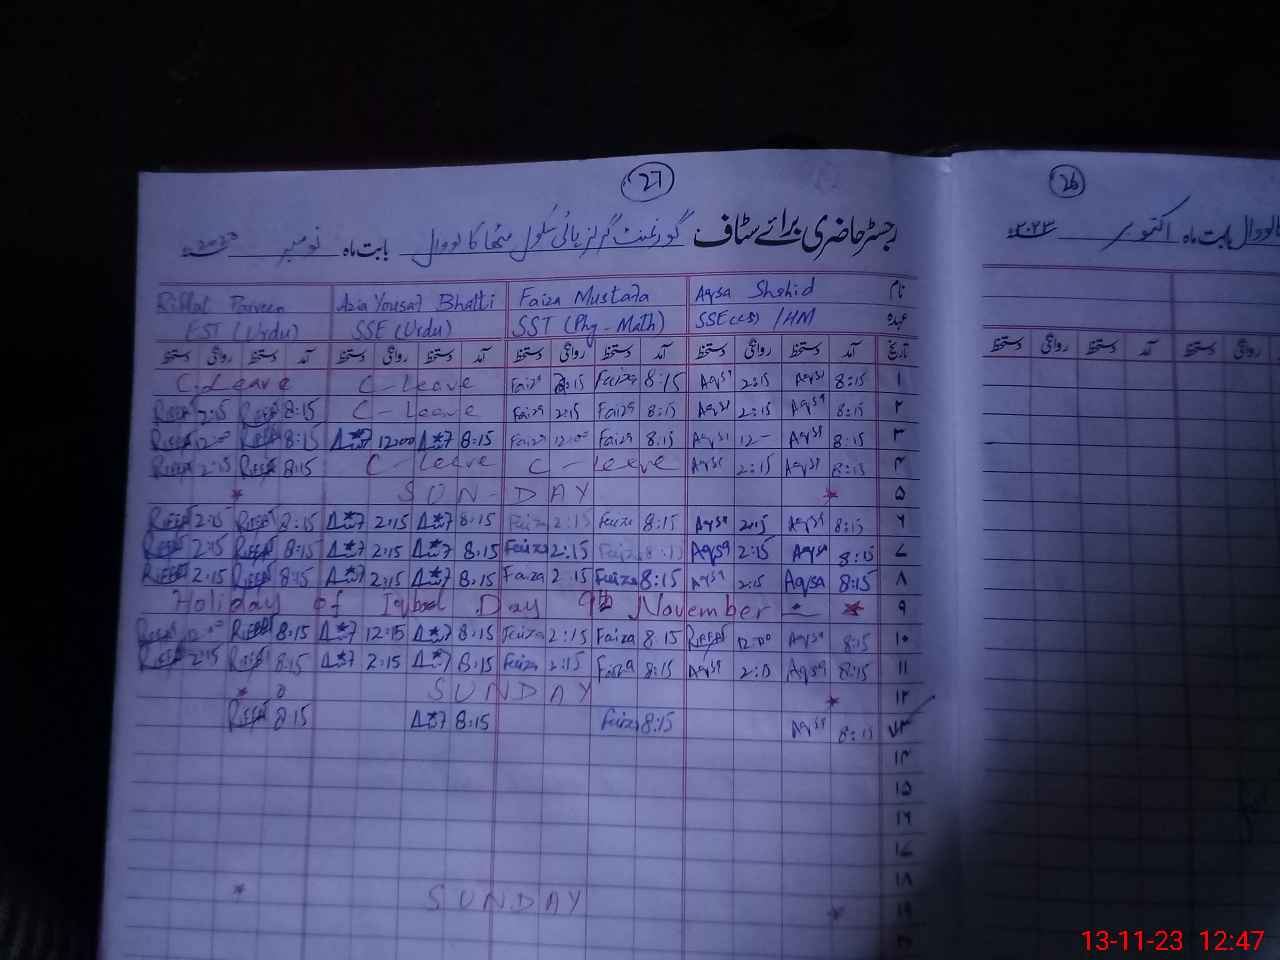 27
رجسٹر حاضری برائے سٹاف گورنمنٹ گرلز ہائی سکول مٹھا کالووال بابت ماہ نومبر 2023ء
نام Aqsa Shahid Faiza Mustafa Azia Yousaf Bhatti Riffat Parveen
عہدہ SSE(CS) /HM SST (Phy-Math) SSE(Urdu) EST (Urdu)
تاریخ آمد دستخط روانگی دستخط آمد دستخط روانگی دستخط آمد دستخط روانگی دستخط آمد دستخط روانگی دستخط
۱ 8:15 Aqsa 2:15 Aqsa 8:15 Faiza 2:15 Faiza C-Leave C-Leave
۲ 8:15 Aqsa 2:15 Aqsa 8:15 Faiza 2:15 Faiza C-Leave 8:15 Riffat 2:15 Riffat
۳ 8:15 Aqsa 12- Aqsa 8:15 Faiza 12:00 Faiza 8:15 12:00 8:15 Riffat 12:00 Riffat
۴ 8:15 Aqsa 2:15 Aqsa C-Leave C-Leave 8:15 Riffat 2:15 Riffat
۵ SUN-DAY
۶ 8:15 Aqsa 2:15 Aqsa 8:15 Faiza 2:15 Faiza 8:15 2:15 8:15 Riffat 2:15 Riffat
۷ 8:15 Aqsa 2:15 Aqsa 8:15 Faiza 2:15 Faiza 8:15 2:15 8:15 Riffat 2:15 Riffat
۸ 8:15 Aqsa 2:15 Aqsa 8:15 Faiza 2:15 Faiza 8:15 2:15 8:15 Riffat 2:15 Riffat
۹ Holiday of Iqbal Day 9th November
۱۰ 8:15 Aqsa 12:00 Riffat 8:15 Faiza 2:15 Faiza 8:15 12:15 8:15 Riffat 12:00 Riffat
۱۱ 8:15 Aqsa Aqsa 8:15 Faiza 2:15 Faiza 8:15 2:15 8:15 Riffat 2:15 Riffat
۱۲ SUNDAY
۱۳ 8:15 Aqsa 8:15 Faiza 8:15 8:15 Riffat
۱۴
۱۵
۱۶
۱۷
۱۸
۱۹ SUNDAY
۲۰
26
بابت ماہ اکتوبر ۲۰۲۳ء
دستخط روانگی دستخط آمد دستخط روانگی
13-11-23 12:47